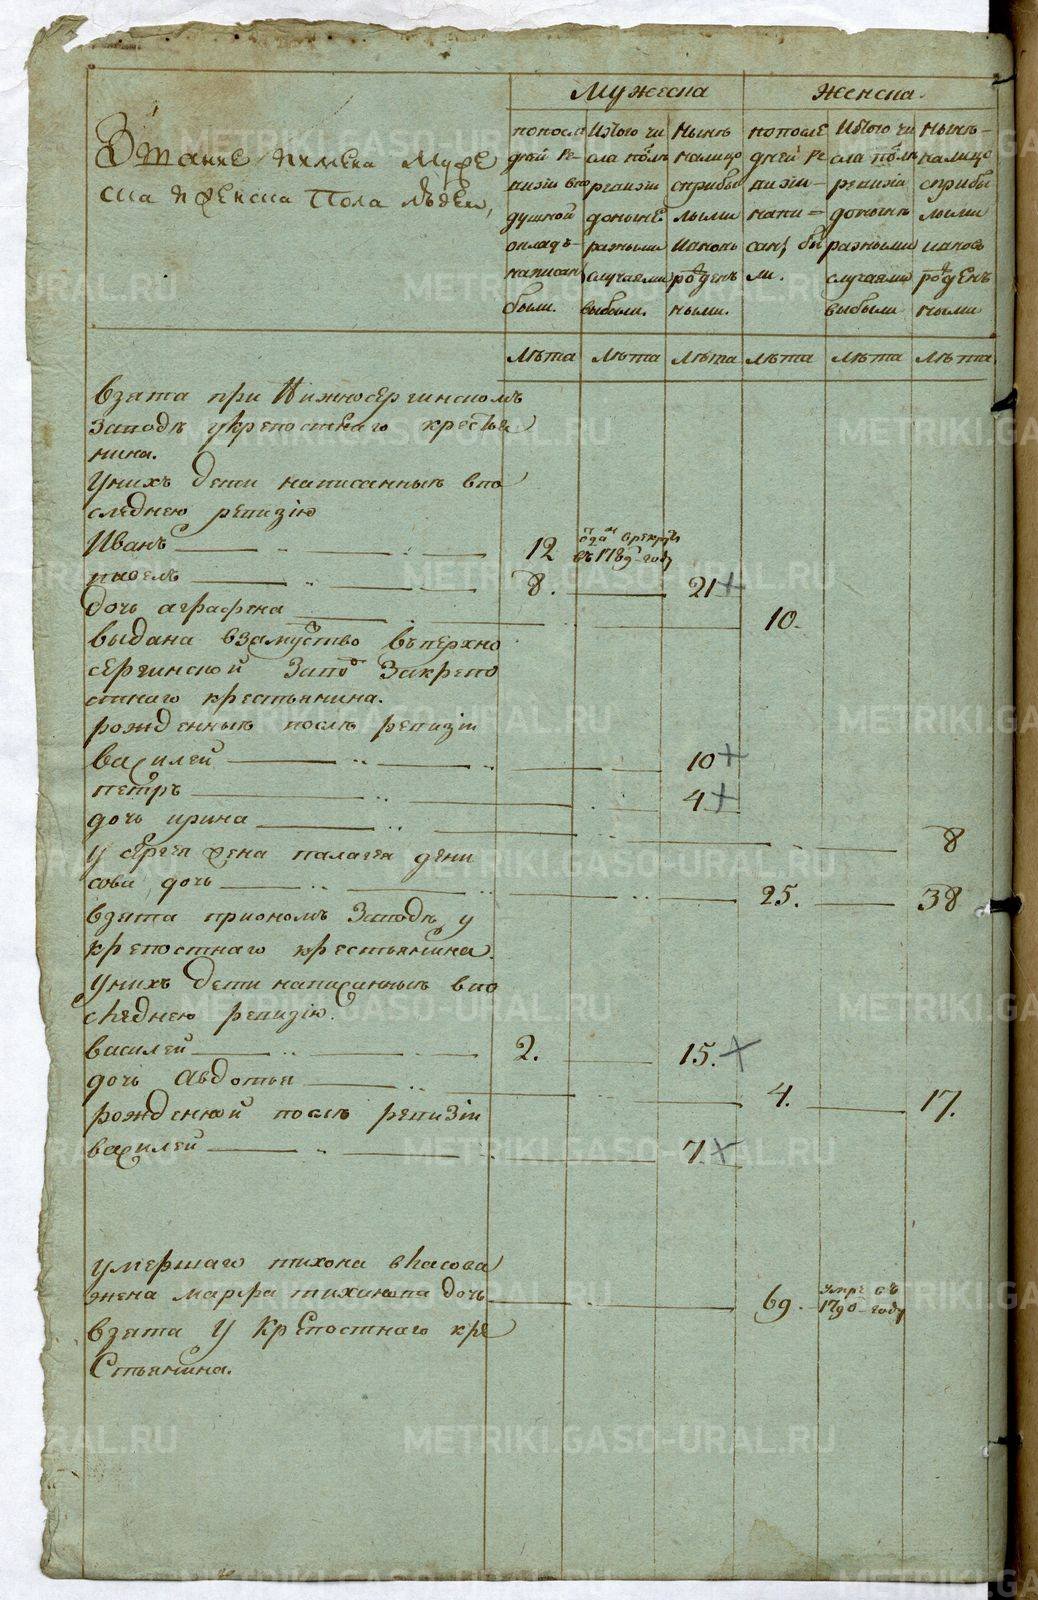 Мужеска
Женска.
Звание имена муже
ска и женска пола людей,
попосле
дней ре
визии въ
душной
окладъ
написан
были.
Изтого чи
сла послѣ
ревизіи
донынѣ
разными
случаями
выбыли.
Нынѣ
налицо
сприбы
лыми
ивновь
рожден
ными.
попосле
дней ре
визіи
напи=
сан, бы
ли.
Изтого чи
сла послѣ
ревизіи
донынѣ
разными
случаями
выбыли
Нынѣ
налицо
сприбы
лыми
ивновь
рожден
ными
лѣта лѣта лѣта лѣта лѣта лѣта
взята при Нижносергинскомъ
заводѣ укрепостнаго крестья
нина.
Унихъ дети написанныя впо
следнею ревизію
Иванъ 12 отдан врекруты въ 1789 году
павелъ 8. 21+
дочь аграфена 10.
выдана взамуство въверхно
сергинской завод закрепо
стнаго крестьянина.
рожденныя послѣ ревизіи
василей 10+
петръ 4+
дочь ирина 8
у сергея жена палагея дени
сова дочь 25. 38
взята приономъ заводѣ у
крепостнаго крестьянина.
Унихъ дети написанныя впо
следнею ревизію.
василей 2. 15.+
дочь Авдотья 4. 17.
рожденной послѣ ревизіи
василей 7+
умершаго тихона власова
жена марфа тихинова дочь 69. умре въ 1790 году
взята у крепостнаго кре
стьянина.
METRIKI.GASO-URAL.RU